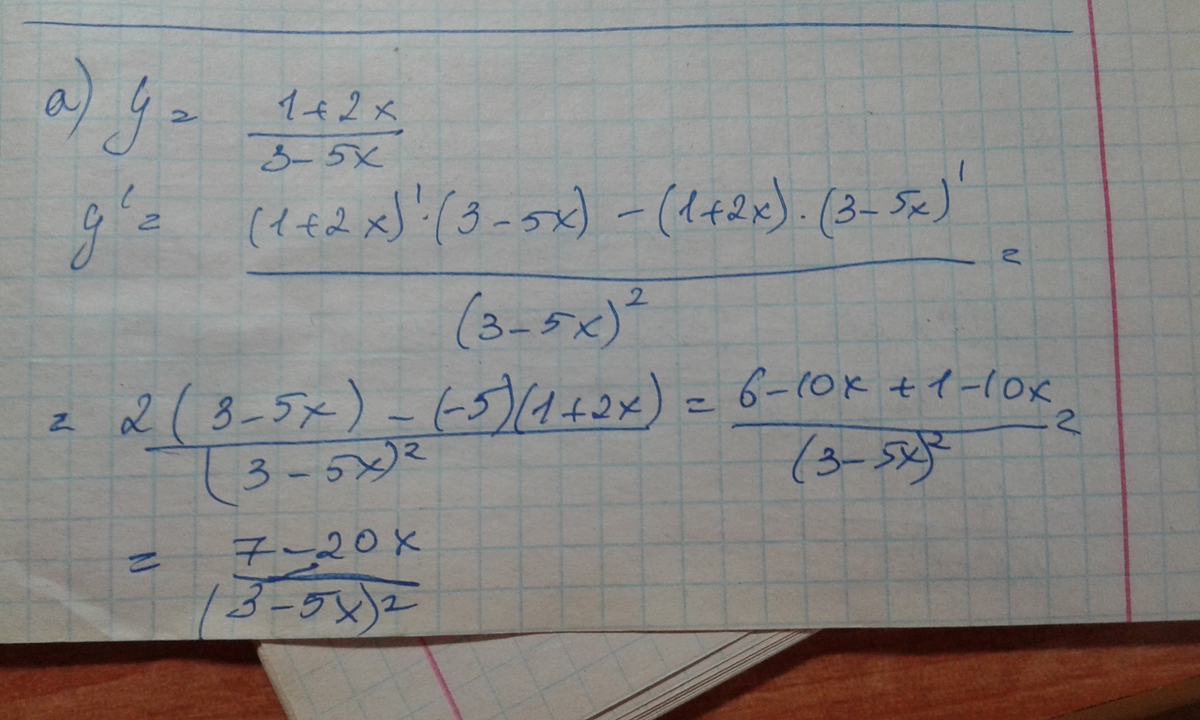 а) y = (1+2x)/(3-5x)
y' = ((1+2x)'·(3-5x) - (1+2x)·(3-5x)')/(3-5x)² =
= (2(3-5x) - (-5)(1+2x))/(3-5x)² = (6-10x+1-10x)/(3-5x)² =
= (7-20x)/(3-5x)²